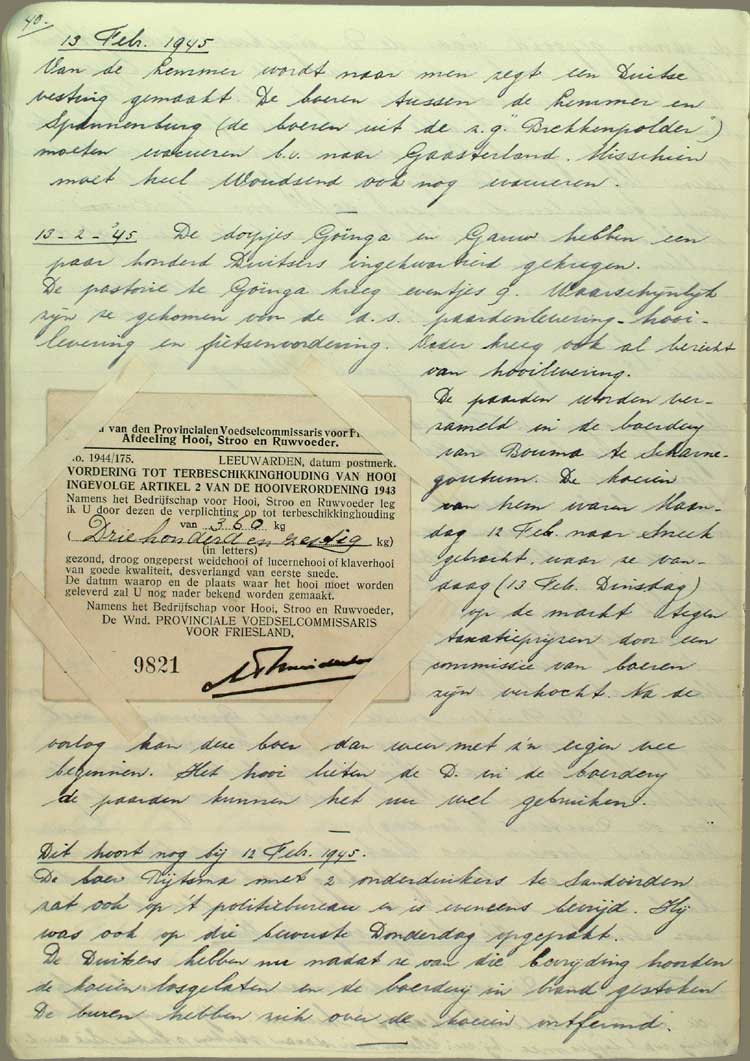 40-
13 Febr. 1945
Van de Lemmer wordt naar men zegt een Duitse
vesting gemaakt. De boeren tussen de Lemmer en
Spannenburg (de boeren uit de z.g. "Brekkenpolder")
moeten evacueren b.v. naar Gaasterland. Misschien
moet heel Woudsend ook nog evacueren.
13-2-'45 De dorpjes Goïnga en Gauw hebben een
paar honderd Duitsers ingekwartierd gekregen.
De pastorie te Goïnga kreeg eventjes 9. Waarschijnlijk
zijn ze gekomen voor de a.s. paardenlevering-hooi-
levering en fietsenvordering. Vader kreeg ook al bericht
van hooilevering.
De paarden worden ver-
zameld in de boerderij
van Bouma te Scharne-
goutum. De koeien
van hem waren Maan-
dag 12 Feb. naar Sneek
gebracht, waar ze van-
daag (13 Feb. Dinsdag)
op de markt tegen
taxatieprijzen door een
commissie van boeren
zijn verkocht. Na de
van den Provincialen Voedselcommissaris voor
Afdeeling Hooi, Stroo en Ruwvoeder.
No. 1944/175. LEEUWARDEN, datum postmerk.
VORDERING TOT TERBESCHIKKINGHOUDING VAN HOOI
INGEVOLGE ARTIKEL 2 VAN DE HOOIVERORDENING 1943
Namens het Bedrijfschap voor Hooi, Stroo en Ruwvoeder leg
ik U door dezen de verplichting op tot terbeschikkinghouding
van 360 kg
(Drie honderd en zestig kg)
(in letters)
gezond, droog ongeperst weidehooi of lucernehooi of klaverhooi
van goede kwaliteit, desverlangd van eerste snede.
De datum waarop en de plaats waar het hooi moet worden
geleverd zal U nog nader bekend worden gemaakt.
Namens het Bedrijfschap voor Hooi, Stroo en Ruwvoeder,
De Wnd. PROVINCIALE VOEDSELCOMMISSARIS
VOOR FRIESLAND,
9821
oorlog kan deze boer dan weer met z'n eigen vee
beginnen. Het hooi lieten de D. in de boerderij
de paarden kunnen het nu wel gebruiken.
Dit hoort nog bij 12 Febr. 1945.
De boer Rijtsma met 2 onderduikers te Sandvirden
zat ook op 't politiebureau en is eveneens bevrijd. Hij
was ook op die bewuste Donderdag opgepakt.
De Duitsers hebben nu nadat ze van die bevrijding hoorden
de koeien losgelaten en de boerderij in brand gestoken
De buren hebben zich over de koeien ontfermd.